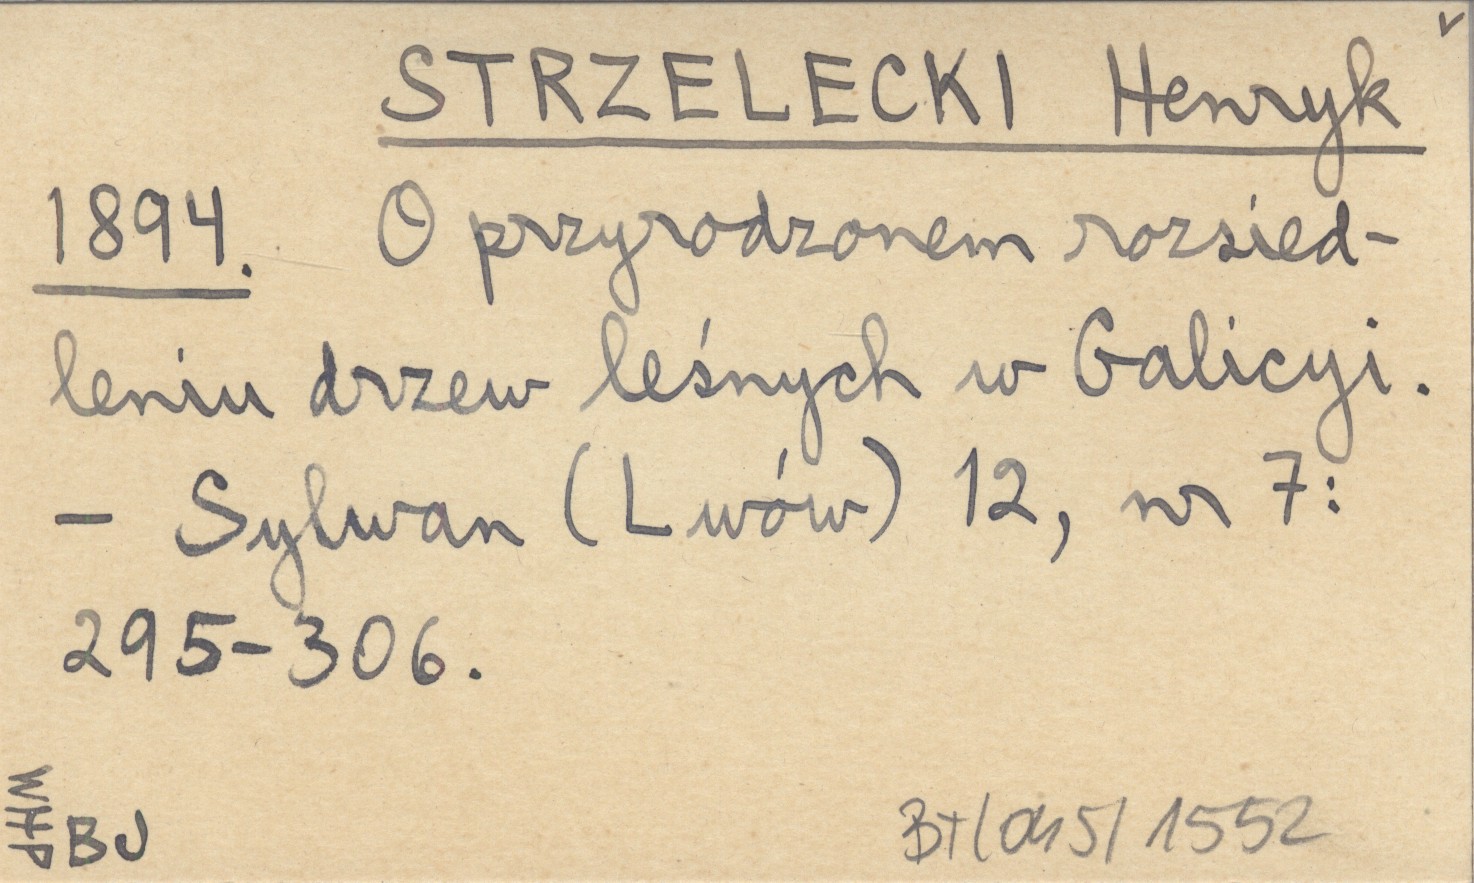 STRZELECKI Henryk
1894. O przyrodzonem rozsied-
leniu drzew leśnych w Galicyi.
- Sylwan (Lwów) 12, nr 7:
295-306.
BJ
1552